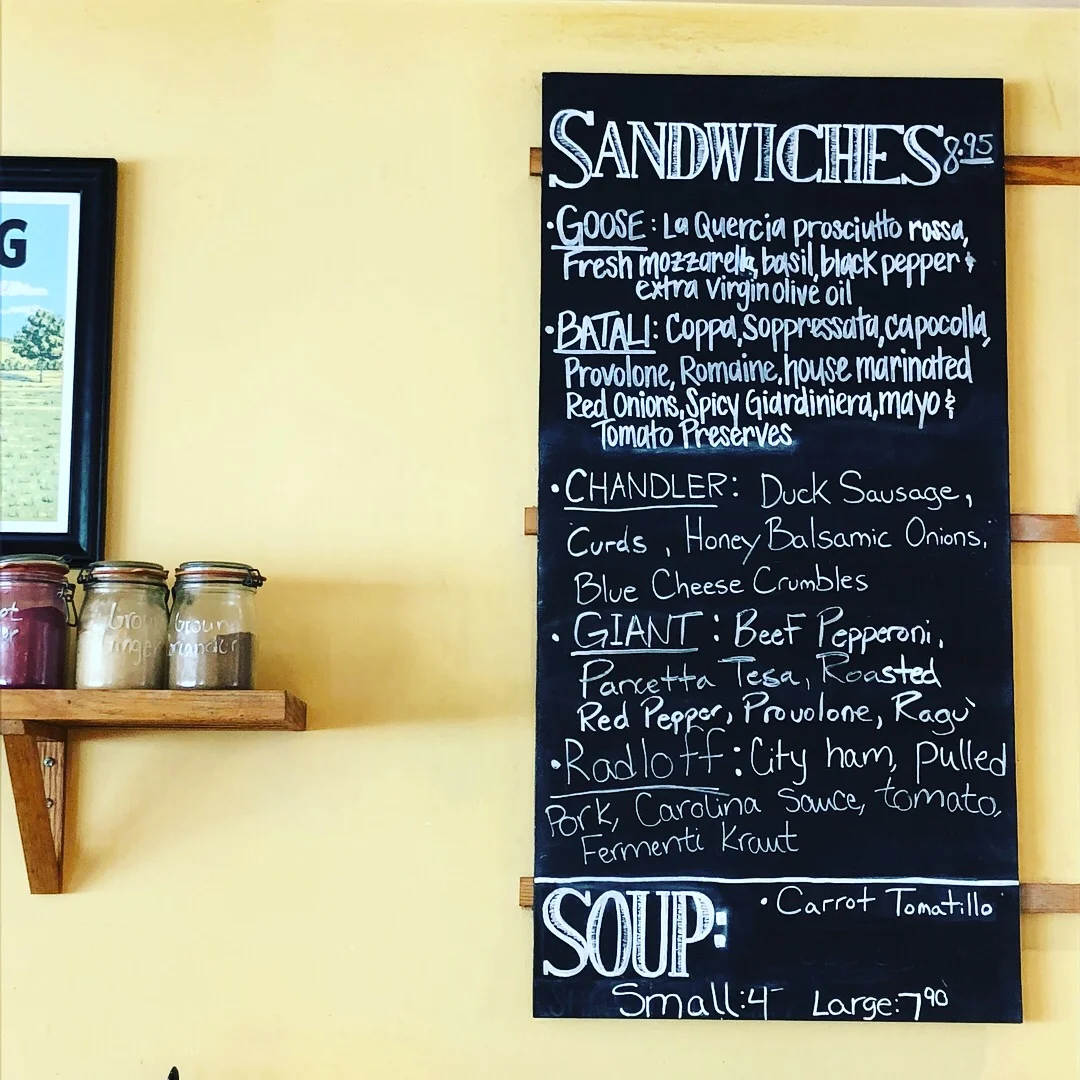 G
SANDWICHES 8.95
• GOOSE: La Quercia prosciutto rossa,
Fresh mozzarella, basil, black pepper &
extra virgin olive oil
• BATALI: Coppa, Soppressata, capocolla,
Provolone, Romaine, house marinated
Red Onions, Spicy Giardiniera, mayo &
Tomato Preserves
• CHANDLER: Duck Sausage,
Curds, Honey Balsamic Onions,
Blue Cheese Crumbles
• GIANT: Beef Pepperoni,
Pancetta Tesa, Roasted
Red Pepper, Provolone, Ragù
• Radloff: City ham, pulled
Pork, Carolina Sauce, tomato,
Fermenti Kraut
SOUP: • Carrot Tomatillo
Small: 4- Large: 7.90
Ground
Ginger
Ground
Coriander